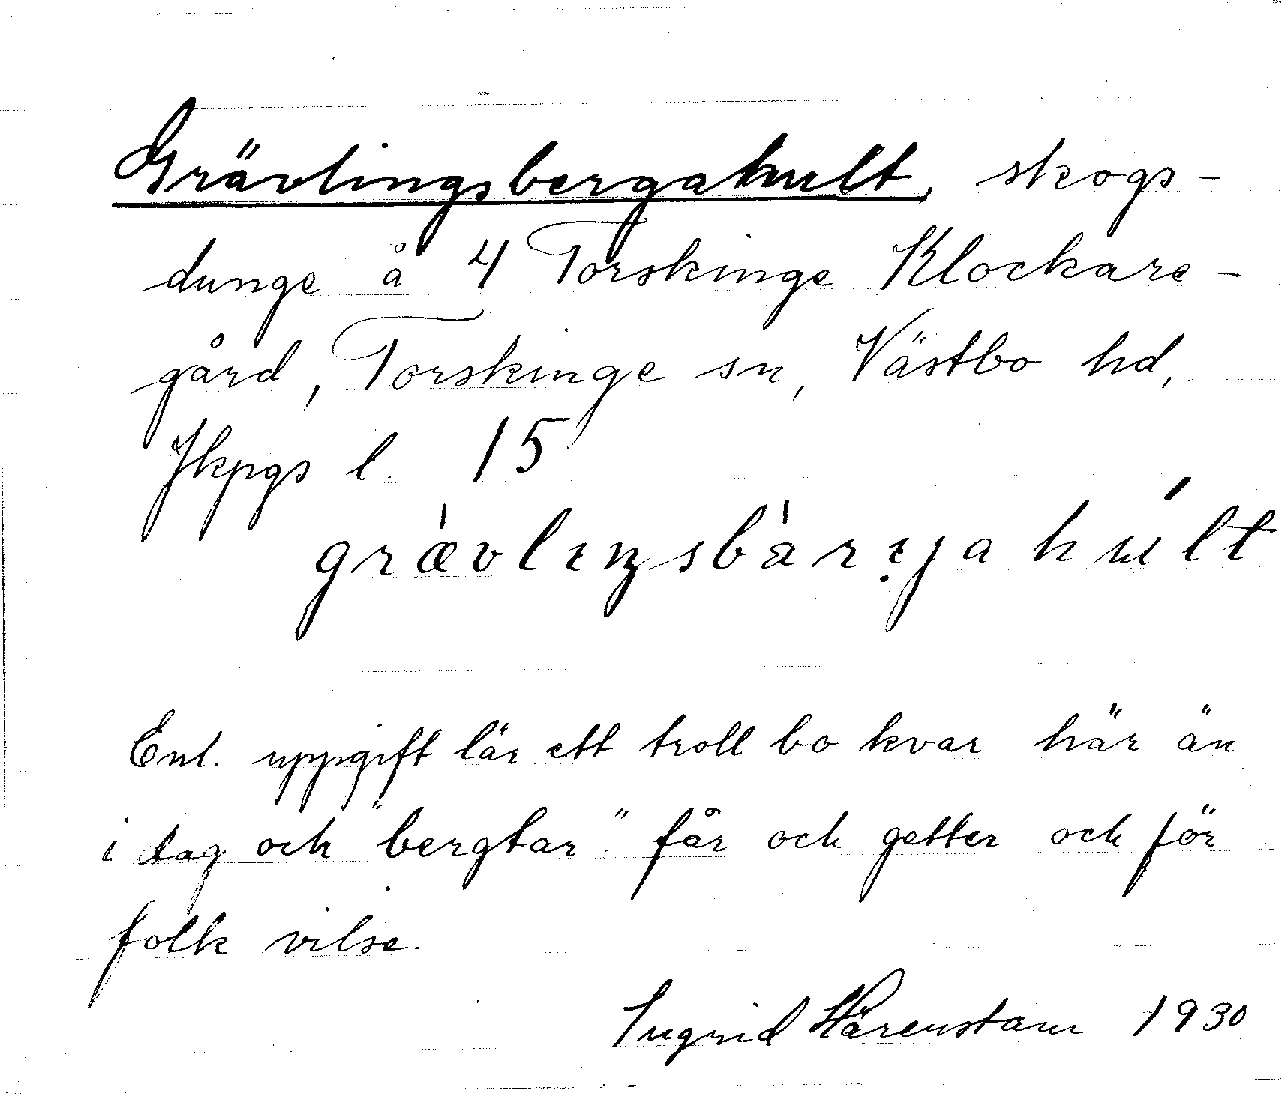 Grävlingsbergahult, skogs-
dunge å 4 Torskinge Klockare-
gård, Torskinge sn, Västbo hd,
Jkpgs l. 15
grævlıŋsbàrɪjahúlt
Enl. uppgift lär ett troll bo kvar här än
i dag och "bergtar" får och getter och för
folk vilse.
Ingrid Härenstam 1930